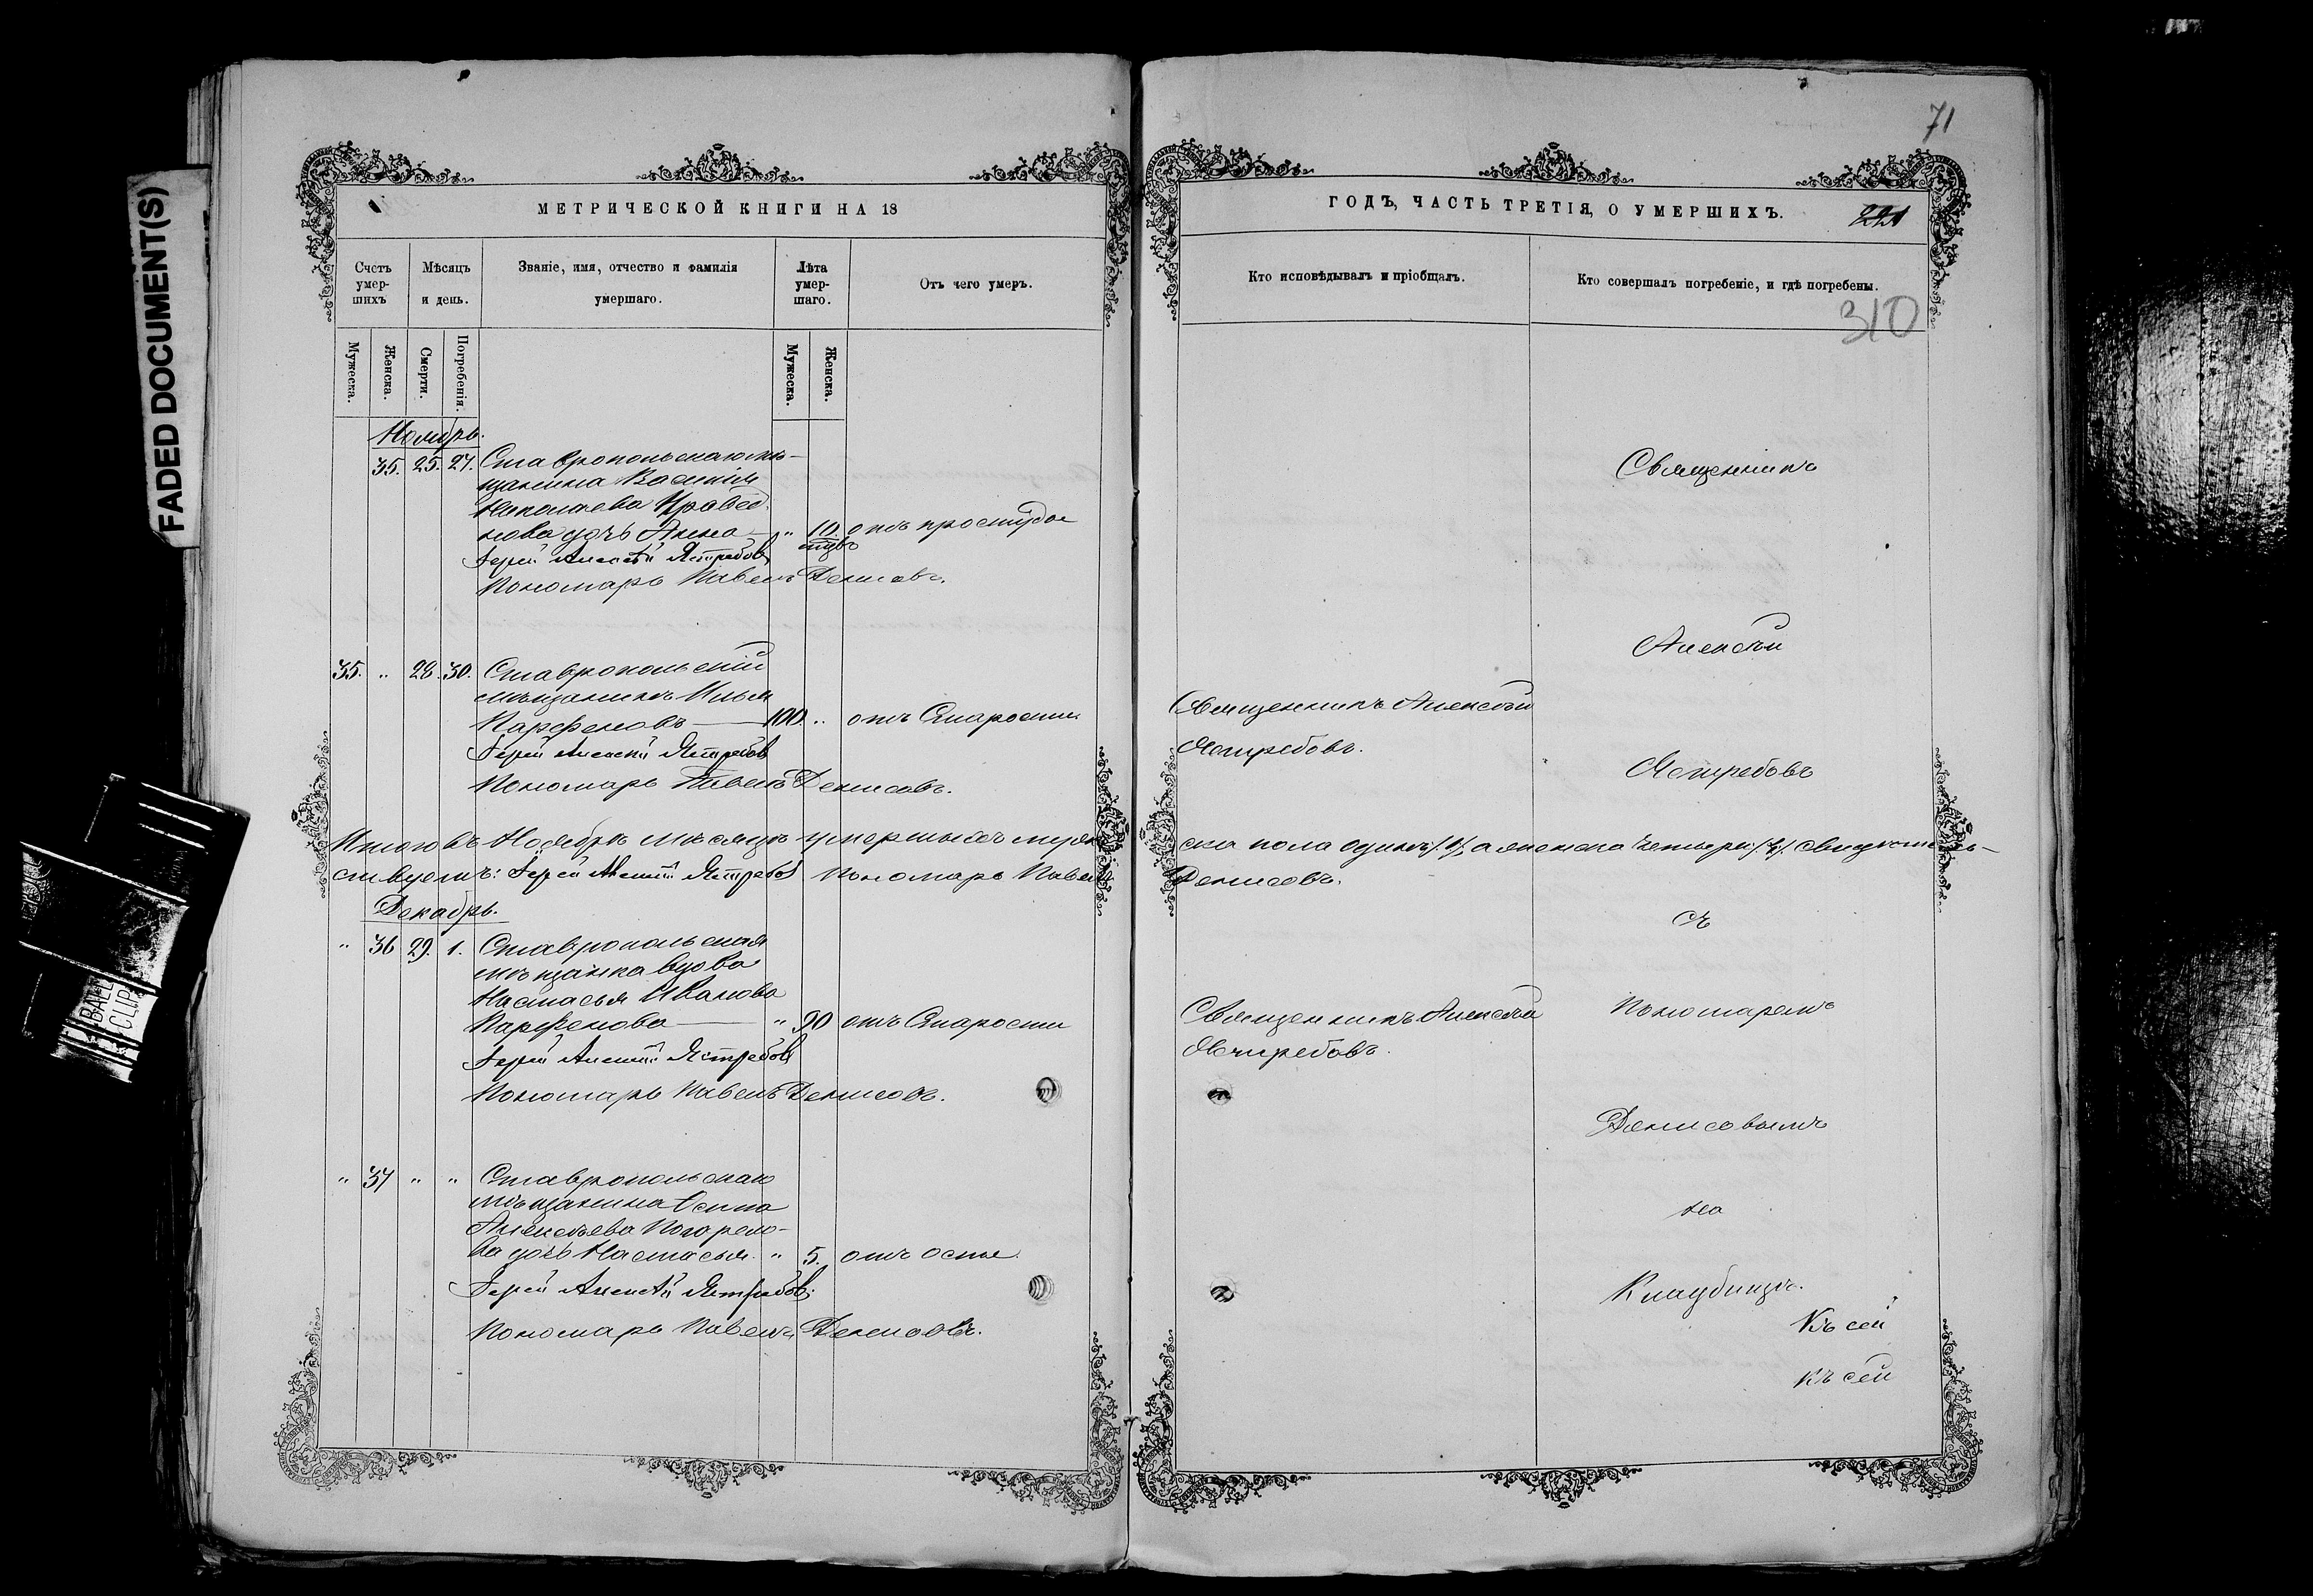 FADED DOCUMENT(S)
МЕТРИЧЕСКОЙ КНИГИ НА 18
Счетъ умер-шихъ
Мѣсяцъ и день.
Званіе, имя, отчество и фамилія умершаго.
Лѣта умер-шаго.
Отъ чего умеръ.
Мужеска.
Женска.
Смерти.
Погребенія.
Мужеска.
Женска.
Ноябрь.
35. 25. 27. Ставропольскаго мѣ-
щанина Василія
Николаева
нова дочь Анна „ 10. отъ простуды
Іерей Алексѣй Ястребовъ
Пономарь Павелъ Денисовъ.
35. „ 28. 30. Ставропольскій
мѣщанинъ Илья
Парфеновъ 100. „ отъ Старости
Іерей Алексѣй Ястребовъ
Пономарь Павелъ Денисовъ.
Итого въ Ноябрѣ мѣсяцѣ умершихъ муже
ствуемъ: Іерей Алексѣй Ястребовъ Пономарь Павелъ
Декабрь.
„ 36 29. 1. Ставропольская
мѣщанка вдова
Настасья Иванова
Парфенова „ 90 отъ Старости
Іерей Алексѣй Ястребовъ
Пономарь Павелъ Денисовъ.
„ 37 „ „ Ставропольскаго
мѣщанина Осипа
Алексѣева Погорело-
ва дочь Настасья „ 5. отъ оспы.
Іерей Алексѣй Ястребовъ
Пономарь Павелъ Денисовъ.
BALL
CLIP
71
ГОДЪ, ЧАСТЬ ТРЕТІЯ, О УМЕРШИХЪ.
221
Кто исповѣдывалъ и пріобщалъ.
Кто совершалъ погребеніе, и гдѣ погребены.
310
Священникъ
Алексѣй
Священникъ Алексѣй
Ястребовъ.
Ястребовъ
ска пола одинъ /1/, а женска четыре /4/ свидѣтель-
Денисовъ.
съ
Священникъ Алексѣй
Ястребовъ.
Пономаремъ
Денисовымъ
на
Кладбищѣ.
Къ сей
Къ сей